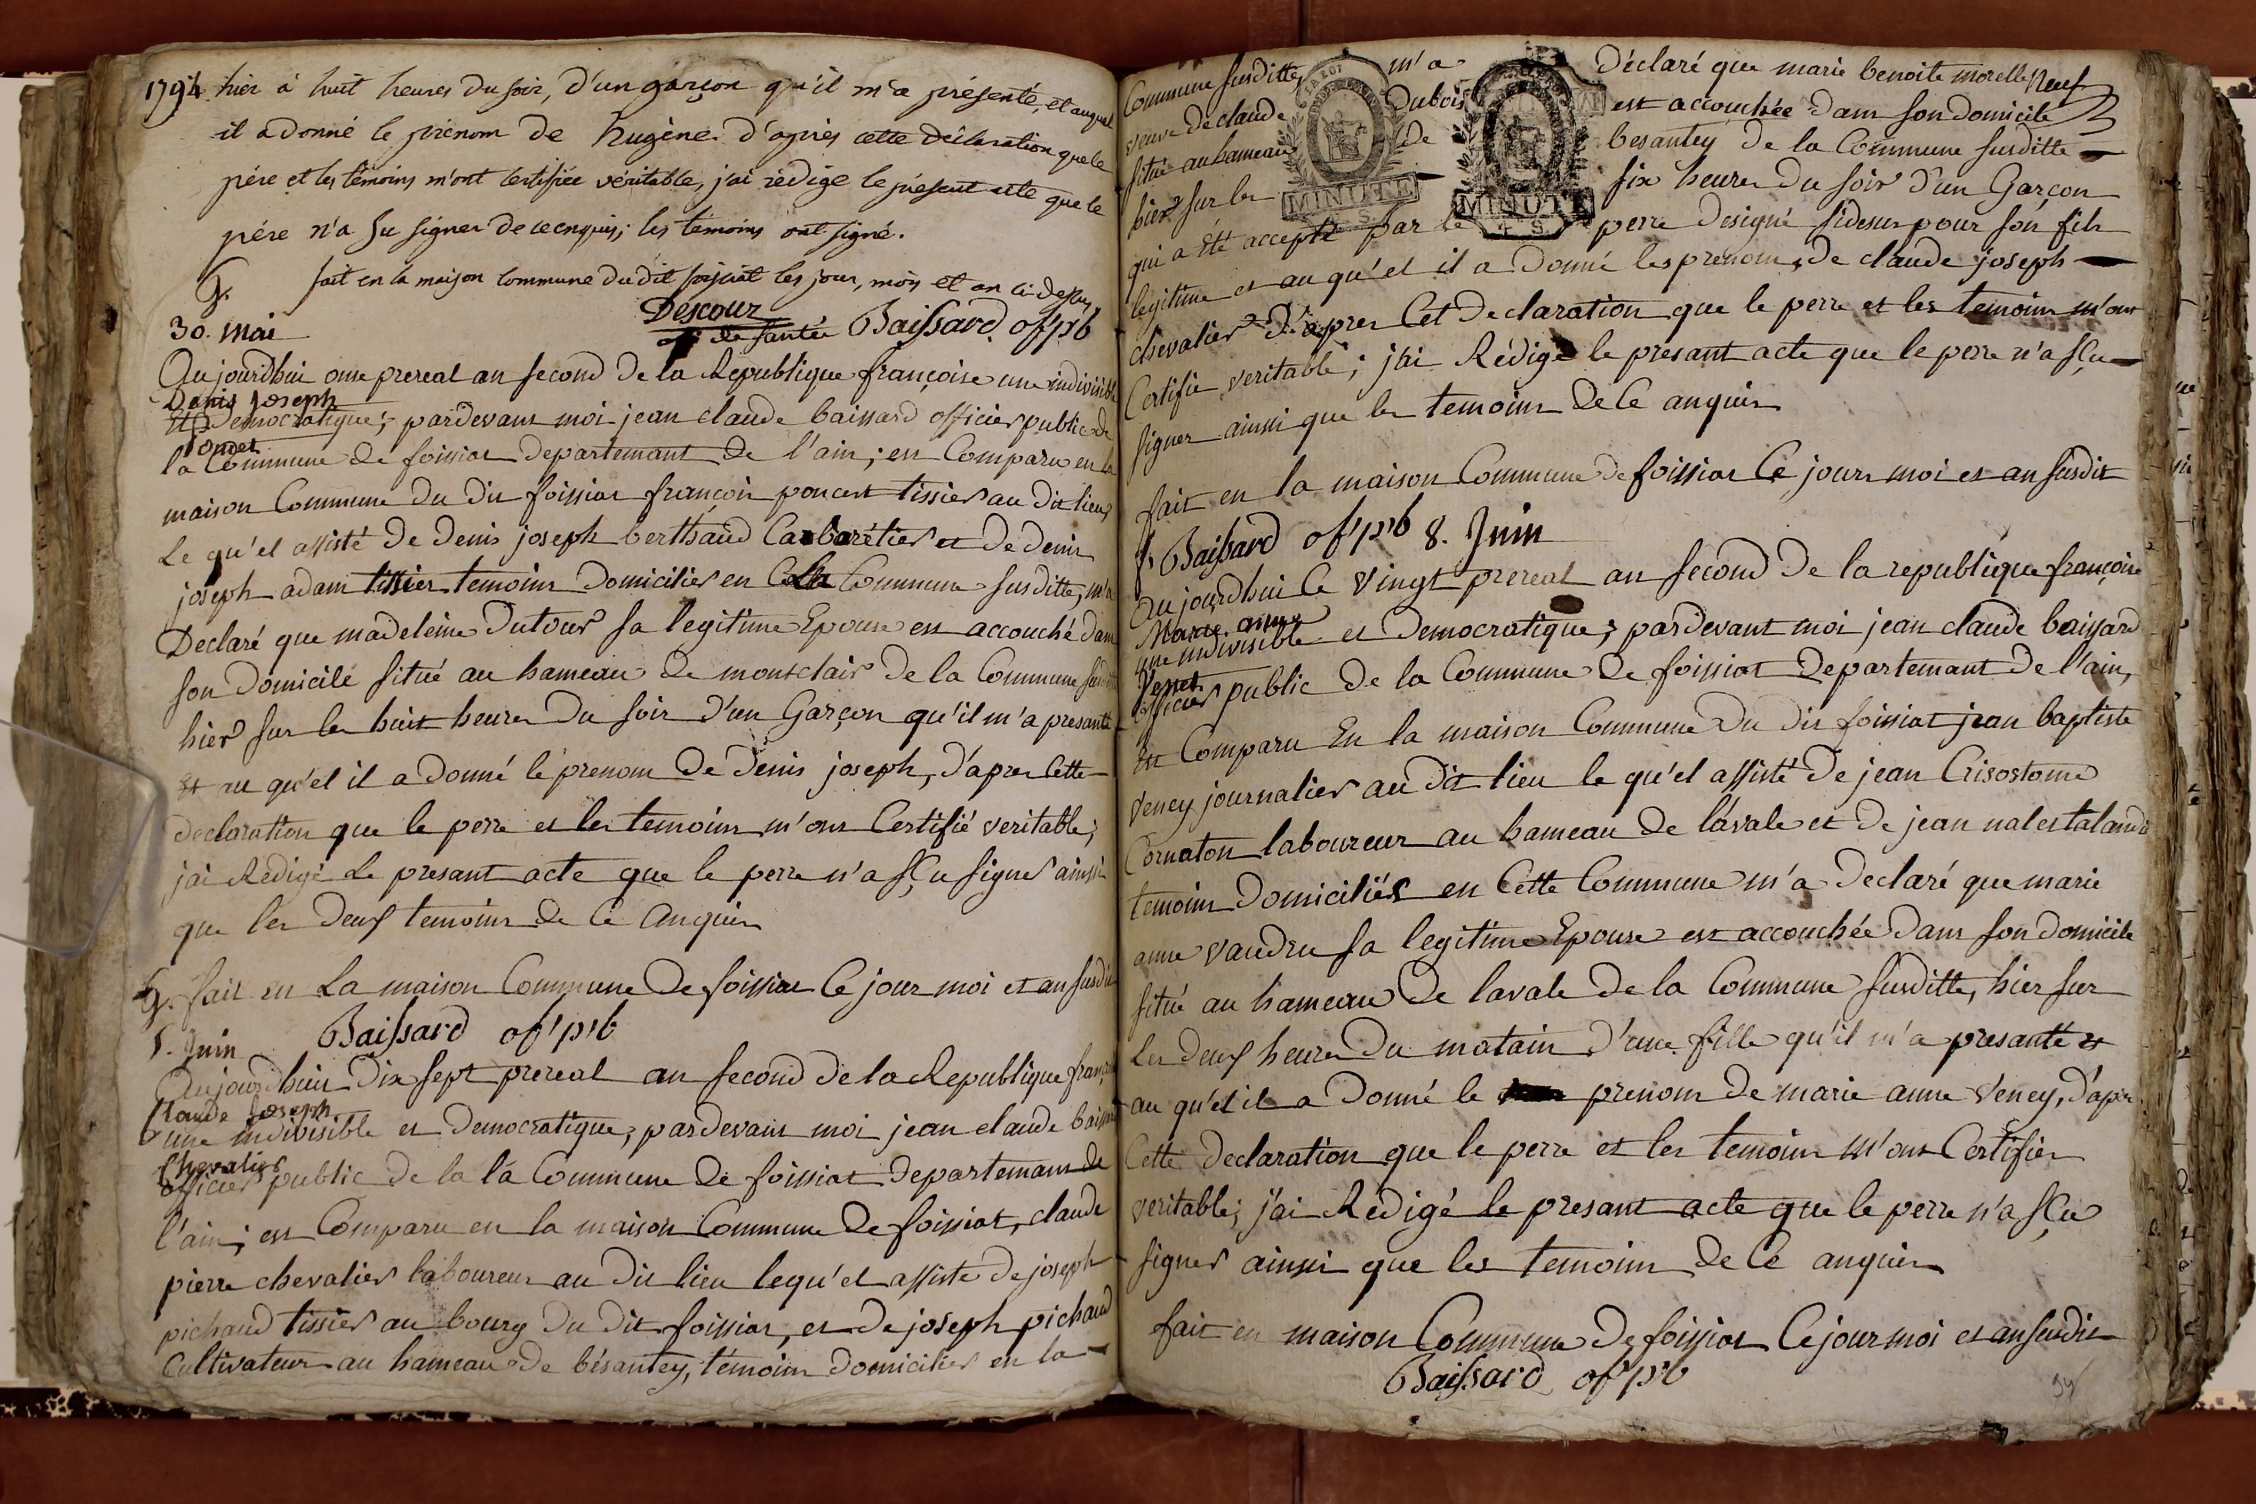 1794. hier à huit heures du soir, d'un garçon qu'il m'a présenté, et auquel
il a donné le prénom de hugène. d'après cette déclaration que le
père et les témoins m'ont certifiée véritable, j'ai rédigé le présent acte que le
père n'a su signer de ce enquis; les témoins ont signé.
fait en la maison commune du dit foissiat les jour, mois et an ci-dessus
Descour
de santée Baissard of'p'b
G.
30. Mai
Aujourdhui onse prereal an second de la Republique françoise une indivisible
Denis Joseph
et Democratique; pardevant moi jean claude baissard officier public de
Poncet
la Commune de foissiat departemant de l'ain; en Comparu en la
maison Commune du dit foissiat françois poncet tissier au dit lieu
Le qu'el assisté de denis joseph berthaud Cabarétier et de denis
joseph adam tissier temoins domiciliés en Cette Commune susditte, m'a
Declaré que madeleine Dutour sa legitime Epouse est accouché dans
son domicile situé au hameau de montclair de la Commune susditte
hier sur les huit heures du soir d'un Garçon qu'il m'a presanté
et au qu'el il a donné le prenom de denis joseph, d'apres Cette
declaration que le perre et les temoins m'ont Certifié veritable;
j'ai Redigé Le presant acte que le perre n'a sçu signer ainssi
que les deux temoins de Ce anquis
G. fait en La maison Commune de foissiat Ce jour moi et an susdit
Baissard of'p'b
5. Juin
Aujourdhui dix sept prereal an second de la Republique françoise
Claude Joseph
une indivisible et democratique; pardevant moi jean claude baissard
Chevalier
officier public de la la Commune de foissiat departemant de
l'ain; est Comparu en la maison Commune de foissiat, claude
pierre chevalier laboureur au dit lieu lequ'el assisté de joseph
pichaud tissier au bourg du dit foissiat, et de joseph pichaud
Cultivateur au hameau de bésantey, témoins domiciliés en la
Commune susditte m'a Déclaré que marie benoite morelle
Neuf
veuve de claude Dubois est accouchée dans son domicile
situé au hameau de besantey de la Commune susditte
hier sur les six heures du soir d'un Garçon
MINUTE
MINUTE
qui a été accepté par le perre designé sidesus pour son fils
legitime et au qu'el il a donné les prenoms de claude joseph
chevalier d'apres Cet declaration que le perre et les temoins m'ont
Certifié veritable; j'ai Rédigé le presant acte que le perre n'a sçu
signer ainssi que les temoins de Ce anquis
fait en la maison Commune de foissiat Ce jour moi et an susdit
Baissard of'p'b 8. Juin
Aujourdhui Ce vingt prereal an second de la republique françoise
Marie anne
une indivisible et democratique; pardevant moi jean claude baissard
Veney
officier public de la Commune de foissiat departemant de l'ain,
est Comparu En la maison Commune du dit foissiat jean baptiste
Veney journalier au dit lieu le qu'el assisté de jean Crisostome
Cornaton laboureur au hameau de lavale et de jean
temoins domiciliés en Cette Commune m'a declaré que marie
anne vaudru sa legitime Epouse est accouchée dans son domicile
situé au hameau de lavale de la Commune susditte, hier sur
Les deux heures du matain d'une fille qu'il m'a presanté et
au qu'el il a donné le prenom de marie anne Veney, d'apres
Cette declaration que le perre et les temoins m'ont Certifier
veritable; j'ai Rédigé le presant acte que le perre n'a sçu
signer ainssi que les temoins de Ce anquis
fait en maison Commune de foissiat Ce jour moi et an susdit
Baissard of'p'b